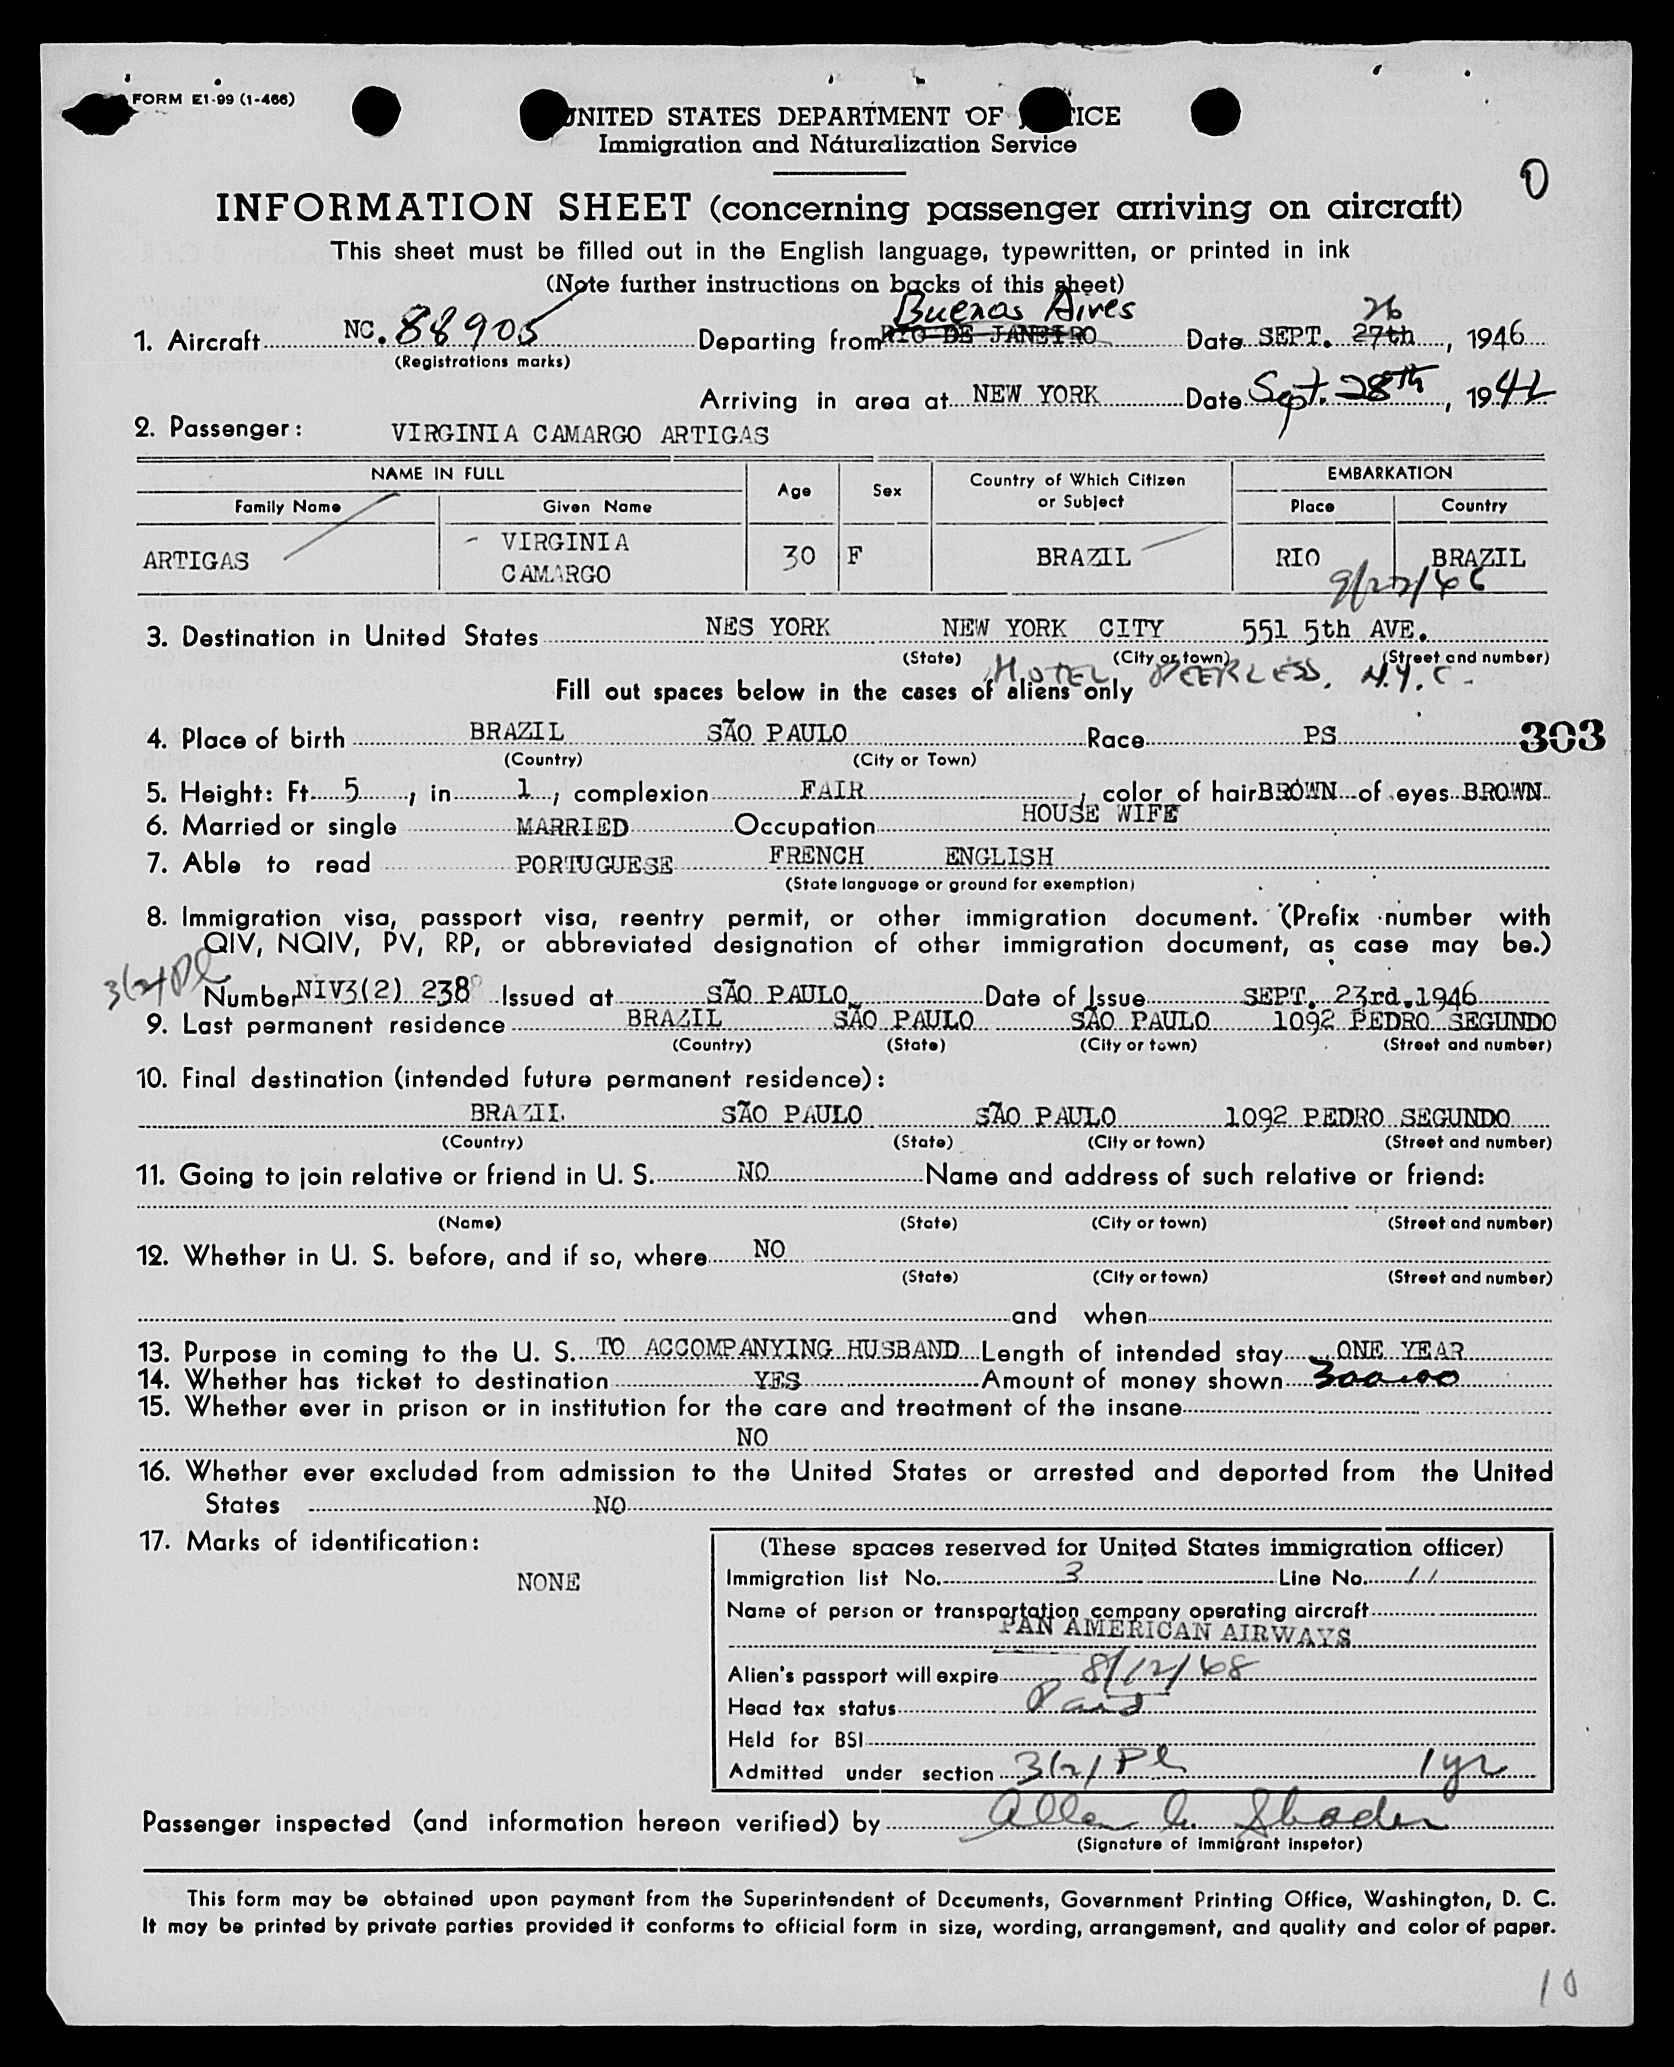 FORM E1-99 (1-466)
UNITED STATES DEPARTMENT OF J ICE
Immigration and Naturalization Service
0
INFORMATION SHEET (concerning passenger arriving on aircraft)
This sheet must be filled out in the English language, typewritten, or printed in ink
(Note further instructions on backs of this sheet)
Buenos Aires 26
1. Aircraft NC. 88905 Departing from RIO DE JANEIRO Date SEPT. 27th, 1946
(Registrations marks)
Arriving in area at NEW YORK Date Sept. 28th, 1942
2. Passenger: VIRGINIA CAMARGO ARTIGAS
NAME IN FULL Age Sex Country of Which Citizen or Subject EMBARKATION
Family Name Given Name Place Country
ARTIGAS VIRGINIA CAMARGO 30 F BRAZIL RIO BRAZIL
9/27/46
3. Destination in United States NES YORK NEW YORK CITY 551 5th AVE.
(State) (City or town) (Street and number)
HOTEL PEERLESS. N.Y.C.
Fill out spaces below in the cases of aliens only
4. Place of birth BRAZIL SÃO PAULO Race PS 303
(Country) (City or Town)
5. Height: Ft. 5, in 1, complexion FAIR, color of hair BROWN of eyes BROWN
6. Married or single MARRIED Occupation HOUSE WIFE
7. Able to read PORTUGUESE FRENCH ENGLISH
(State language or ground for exemption)
8. Immigration visa, passport visa, reentry permit, or other immigration document. (Prefix number with
QIV, NQIV, PV, RP, or abbreviated designation of other immigration document, as case may be.)
3(2) Pl
Number NIV3(2) 238 Issued at SÃO PAULO Date of Issue SEPT. 23rd.1946
9. Last permanent residence BRAZIL SÃO PAULO SÃO PAULO 1092 PEDRO SEGUNDO
(Country) (State) (City or town) (Street and number)
10. Final destination (intended future permanent residence):
BRAZIL SÃO PAULO SÃO PAULO 1092 PEDRO SEGUNDO
(Country) (State) (City or town) (Street and number)
11. Going to join relative or friend in U. S. NO Name and address of such relative or friend:
(Name) (State) (City or town) (Street and number)
12. Whether in U. S. before, and if so, where NO
(State) (City or town) (Street and number)
and when
13. Purpose in coming to the U. S. TO ACCOMPANYING HUSBAND Length of intended stay ONE YEAR
14. Whether has ticket to destination YES Amount of money shown 300.00
15. Whether ever in prison or in institution for the care and treatment of the insane
NO
16. Whether ever excluded from admission to the United States or arrested and deported from the United
States NO
17. Marks of identification:
NONE
(These spaces reserved for United States immigration officer)
Immigration list No. 3 Line No. 11
Name of person or transportation company operating aircraft
PAN AMERICAN AIRWAYS
Alien's passport will expire 8/12/48
Head tax status Paid
Held for BSI
Admitted under section 3(2) Pl 1 yr
Passenger inspected (and information hereon verified) by Allen
(Signature of immigrant inspetor)
This form may be obtained upon payment from the Superintendent of Documents, Government Printing Office, Washington, D. C.
It may be printed by private parties provided it conforms to official form in size, wording, arrangement, and quality and color of paper.
10